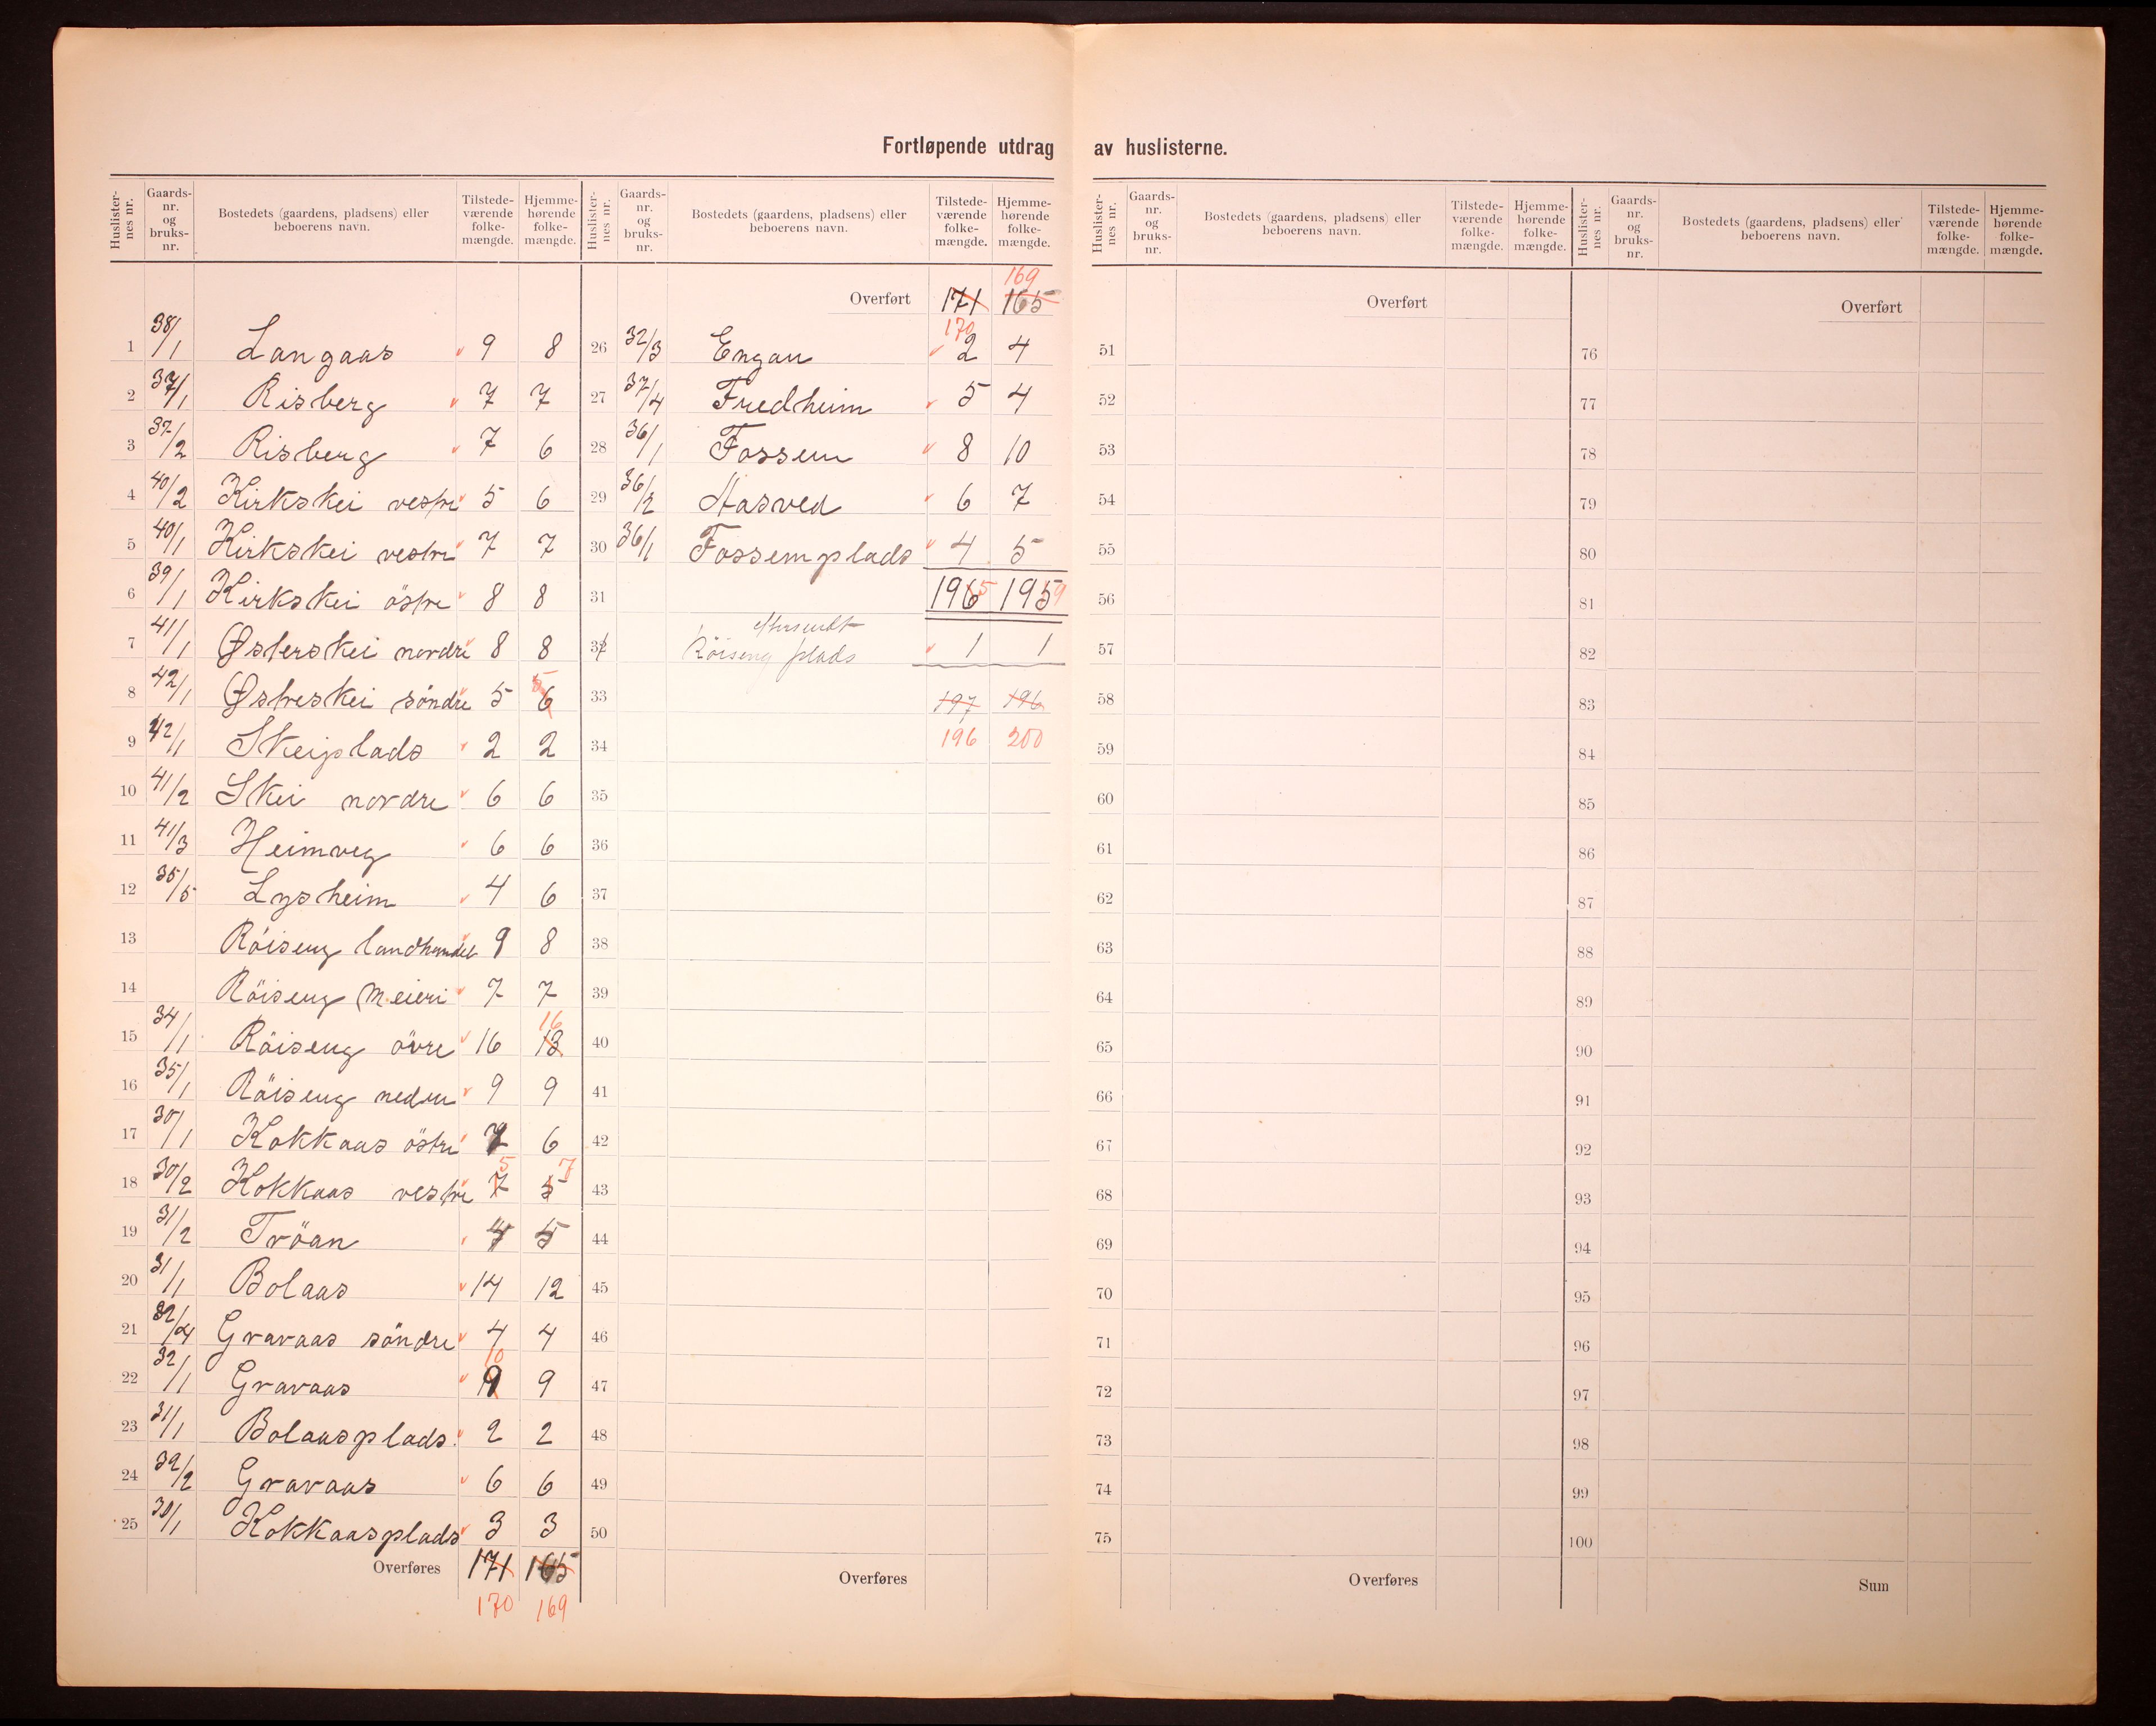 Fortløpende utdrag av huslisterne.
Huslister-nes nr. | Gaards-nr. og bruks-nr. | Bostedets (gaardens, pladsens) eller beboerens navn. | Tilstede-værende folke-mængde. | Hjemme-hørende folke-mængde.
1 38/1 Langaas 9 8
2 37/1 Risberg 7 7
3 37/2 Risberg 7 6
4 40/2 Kirkskei vestre 5 6
5 40/1 Kirkskei vestre 7 7
6 39/1 Kirkskei östre 8 8
7 41/1 Østerskei nordre 8 8
8 42/1 Østreskei söndre 5 6 5
9 42/1 Skeiplads 2 2
10 41/2 Skei nordre 6 6
11 41/3 Heimveg 6 6
12 35/5 Lysheim 4 6
13 Röiseng landhandel 9 8
14 Röiseng Meieri 7 7
15 34/1 Röiseng övre 16 13 16
16 35/1 Röiseng nedre 9 9
17 30/1 Kokkaas östre 7 6
18 30/2 Kokkaas vestre 7 5 5 7
19 31/2 Tröan 4 5
20 31/1 Bolaas 14 12
21 32/4 Gravaas söndre 4 4
22 32/1 Gravaas 9 10 9
23 31/1 Bolaasplads. 2 2
24 32/2 Gravaas 6 6
25 30/1 Kokkaasplads 3 3
Overføres 171 165
170 169
Huslister-nes nr. | Gaards-nr. og bruks-nr. | Bostedets (gaardens, pladsens) eller beboerens navn. | Tilstede-værende folke-mængde. | Hjemme-hørende folke-mængde.
169
Overført 171 165
170
26 32/3 Engan 2 4
27 37/4 Fredheim 5 4
28 36/1 Fossem 8 10
29 36/2 Aasved 6 7
30 36/1 Fossemplads 4 5
31 196 5 195 9
eftersendt
32 Röiseng plads 1 1
33 197 196
34 196 200
35
36
37
38
39
40
41
42
43
44
45
46
47
48
49
50
Overføres
Huslister-nes nr. | Gaards-nr. og bruks-nr. | Bostedets (gaardens, pladsens) eller beboerens navn. | Tilstede-værende folke-mængde. | Hjemme-hørende folke-mængde.
Overført
51
52
53
54
55
56
57
58
59
60
61
62
63
64
65
66
67
68
69
70
71
72
73
74
75
Overføres
Huslister-nes nr. | Gaards-nr. og bruks-nr. | Bostedets (gaardens, pladsens) eller beboerens navn. | Tilstede-værende folke-mængde. | Hjemme-hørende folke-mængde.
Overført
76
77
78
79
80
81
82
83
84
85
86
87
88
89
90
91
92
93
94
95
96
97
98
99
100
Sum